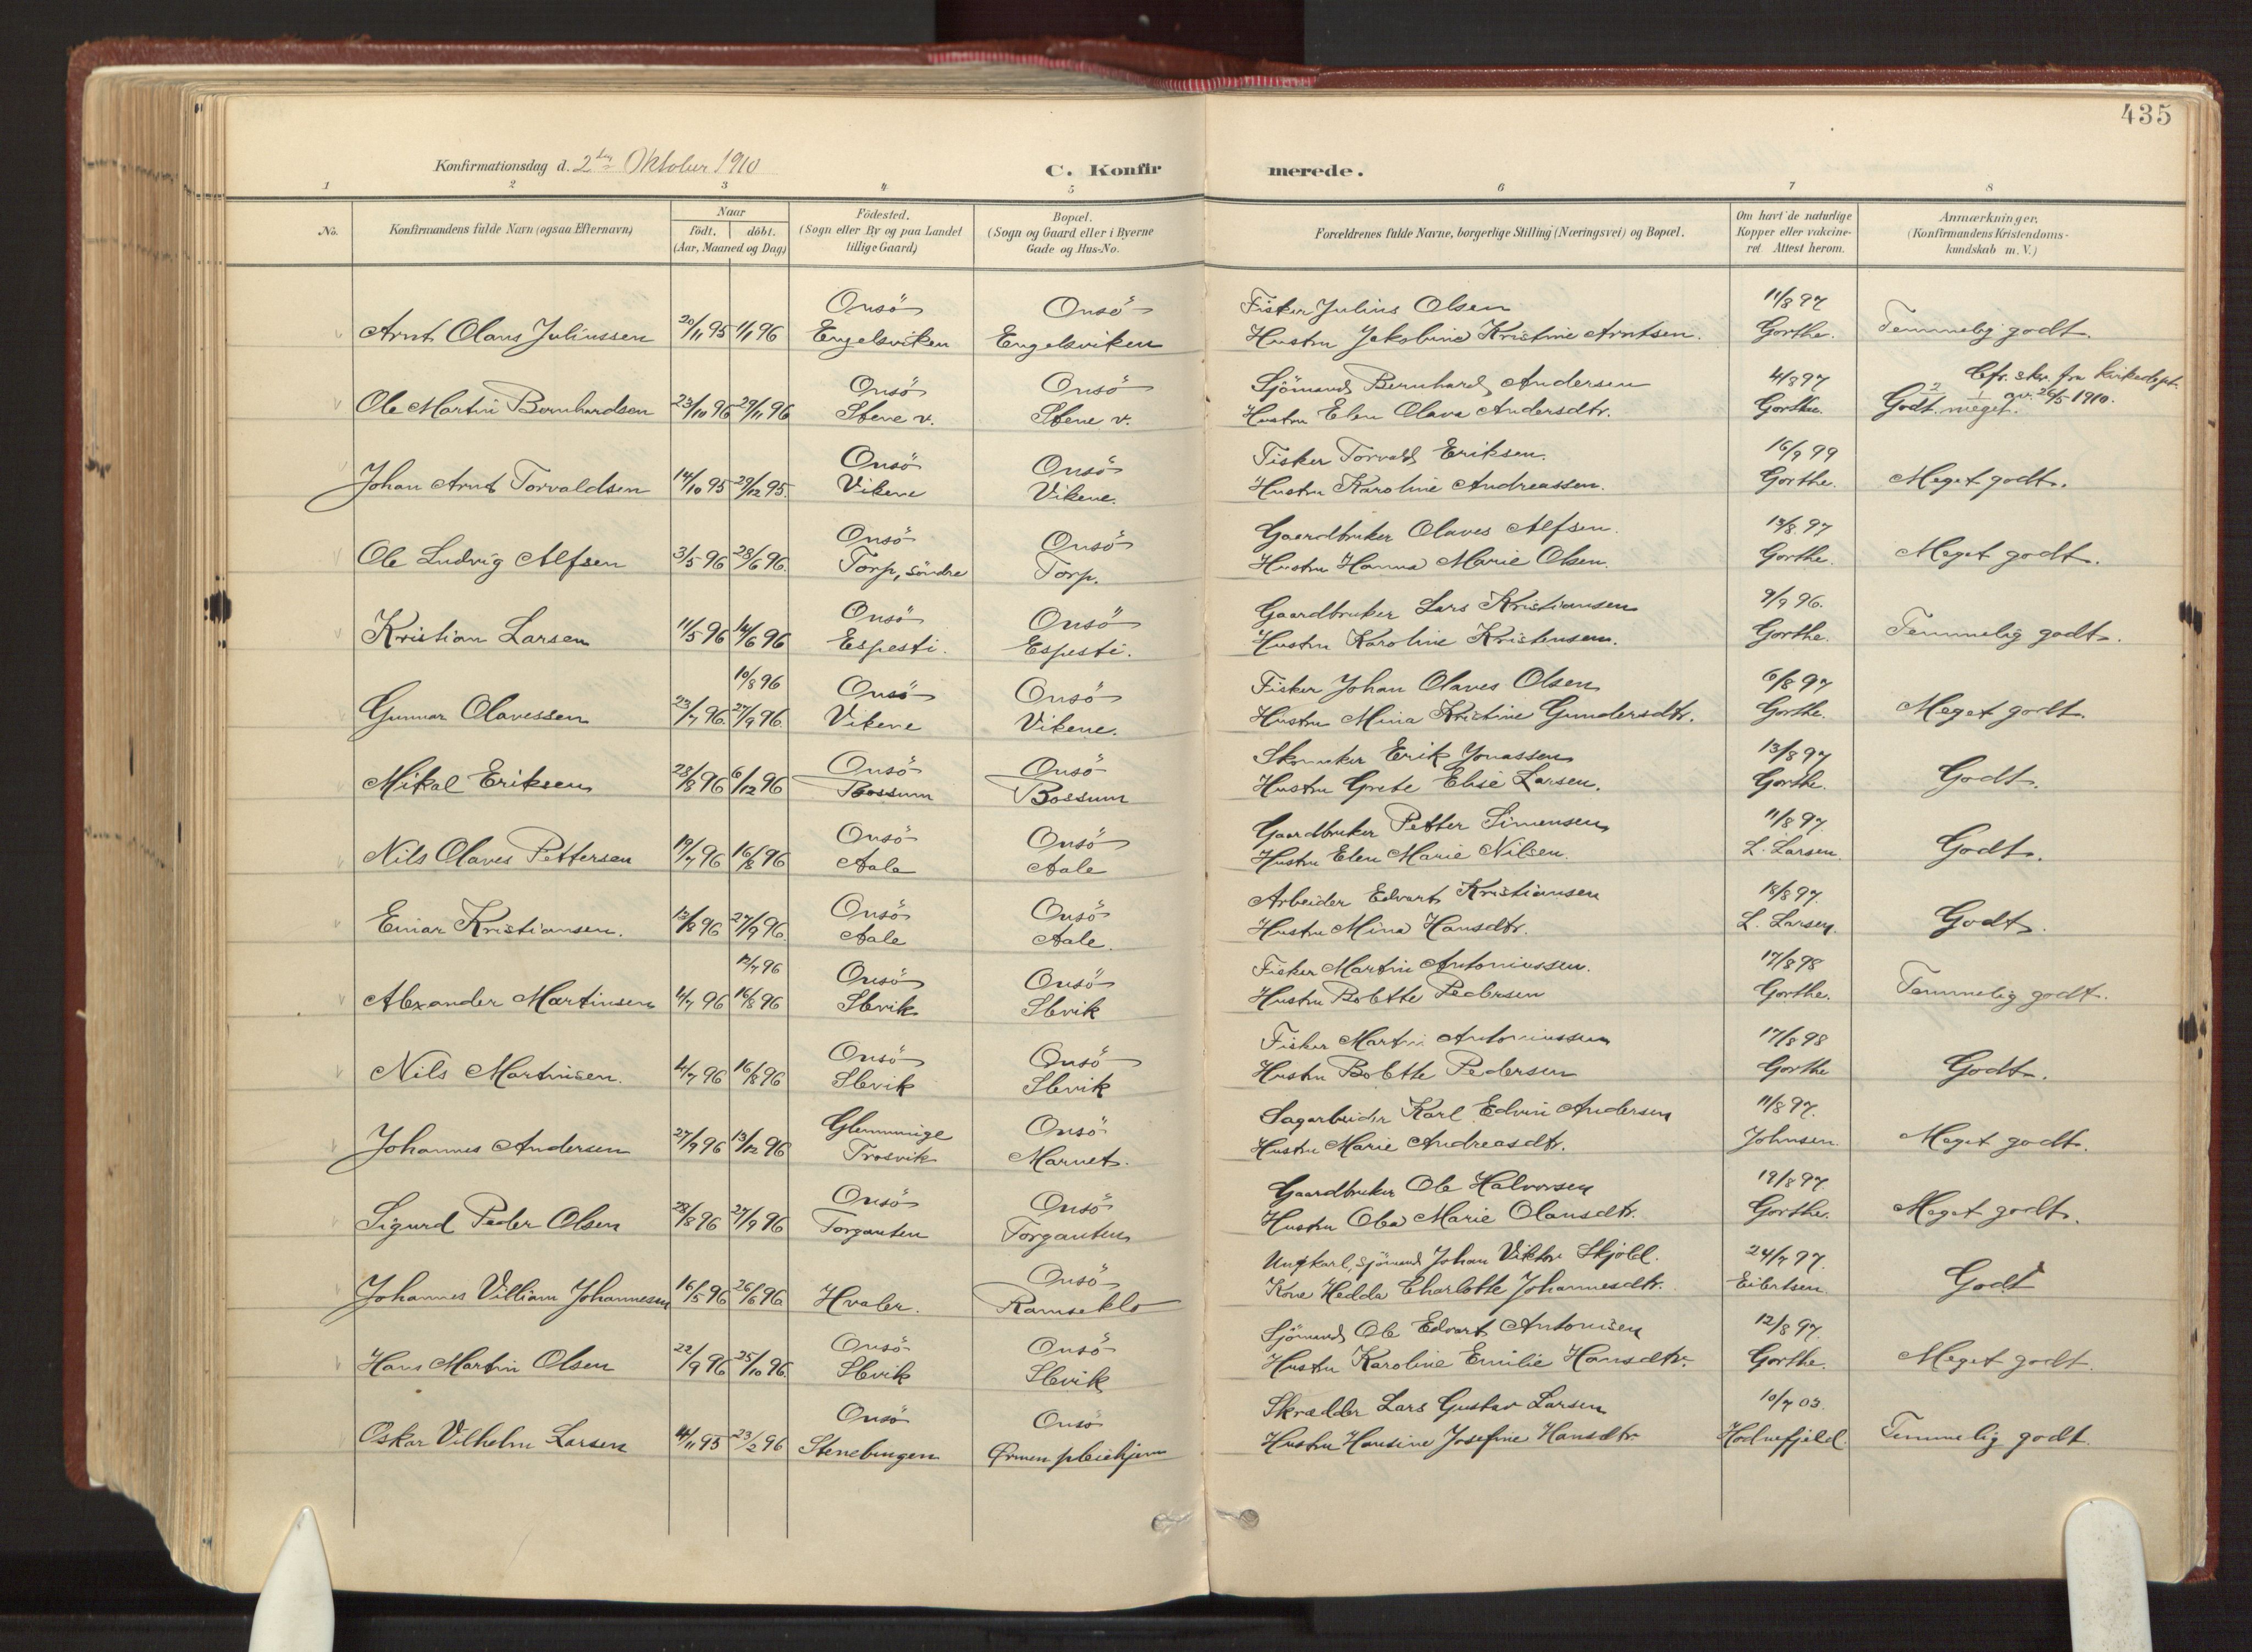 435
Konfirmationsdag d. 2den Oktober 1910
C. Konfirmerede.
1 2 3 4 5 6 7 8
No.
Konfirmandens fulde Navn (ogsaa Efternavn)
Naar
födt. | döbt.
(Aar, Maaned og Dag)
Födested.
(Sogn eller By og paa Landet
tillige Gaard)
Bopæl.
(Sogn og Gaard eller i Byerne
Gade og Hus-No.
Forældrenes fulde Navne, borgerlige Stilling (Næringsvei) og Bopæl.
Om havt de naturlige
Kopper eller vakcine-
ret. Attest herom.
Anmærkninger.
(Konfirmandens Kristendoms-
kundskab m. V.)
Onsö Onsö Fisker Julius Olsen 11/8 97
Arnt Olaus Juliussen 20/11 95 1/1 96 Engelsviken Engelsviken Hustru Jakobine Kristine Arntsen. Gorthe. Temmelig godt.
Onsö Onsö Sjömand Bernhard Andersen 4/8 97 Cfr. skr. fra kirkedept.
Ole Martin Bernhardsen 23/10 96 29/11 96 Stene v. Stene v. Hustru Elen Olava Andersdtr. Gorthe. 2 Godt. 1 meget. av. 26/5 1910.
Onsö Onsö Fisker Torvald Eriksen. 16/9 99
Johan Arnt Torvaldsen 14/10 95 29/12 95. Vikene Vikene. Hustru Karoline Andreassen. Gorthe. Meget godt.
Onsö Onsö Gaardbruker Olaves Alfsen. 13/8 97
Ole Ludvig Alfsen 3/5 96 28/6 96. Torp, söndre Torp. Hustru Hanna Marie Olsen. Gorthe. Meget godt.
Onsö Onsö Gaardbruker Lars Kristiansen 9/9 96.
Kristian Larsen 11/5 96 14/6 96 Espesti. Espesti. Hustru Karoline Kristensen. Gorthe. Temmelig godt.
10/8 96 Onsö Onsö Fisker Johan Olaves Olsen 6/8 97
Gunnar Olavessen 23/7 96. 27/9 96. Vikene Vikene. Hustru Mina Kristine Gundersdtr. Gorthe. Meget godt.
Onsö Onsö Skomaker Erik Jonassen 13/8 97
Mikal Eriksen 28/8 96 6/12 96 Bossum Bossum Hustru Grete Elise Larsen. Gorthe. Godt.
Onsö Onsö Gaardbruker Petter Simensen 11/8 97.
Nils Olaves Pettersen 19/7 96 16/8 96 Aale Aale Hustru Elen Marie Nilsen. L. Larsen. Godt.
Onsö Onsö Arbeider Edvart Kristiansen 18/8 97.
Einar Kristiansen. 13/8 96 27/9 96. Aale Aale. Hustru Mina Hansdtr. L. Larsen. Godt.
12/7 96 Onsö Onsö Fisker Martin Antoniussen. 17/8 98
Alexander Martinsen 4/7 96 16/8 96 Slevik Slevik Hustru Bolette Pedersen Gorthe. Temmelig godt.
Onsö Onsö Fisker Martin Antoniussen 17/8 98
Nils Martinsen. 4/7 96 16/8 96 Slevik Slevik Hustru Bolette Pedersen Gorthe Godt.
Glemminge Onsö Sagarbeider Karl Edvin Andersen 11/8 97.
Johannes Andersen 27/9 96 13/12 96 Trosvik Marnet. Hustru Marie Andreasdtr. Johnsen. Meget godt.
Onsö Onsö Gaardbruker Ole Halvorsen 19/8 97.
Sigurd Peder Olsen 28/8 96 27/9 96 Torgauten Torgauten Hustru Olea Marie Olausdtr. Gorthe. Meget godt.
Onsö Ungkarl, sjömand Johan Viktor Skjöld. 24/7 97.
Johannes Villiam Johannesen 16/5 96 26/6 96 Hvaler. Ramseklo Kone Hedda Charlotte Johannesdtr. Eilertsen Godt
Onsö Onsö Sjömand Ole Edvart Antonisen 12/8 97.
Hans Martin Olsen 22/9 96 25/10 96. Slevik Slevik Hustru Karoline Emilie Hansdtr. Gorthe. Meget godt.
Onsö Onsö Skrædder Lars Gustav Larsen 10/7 03.
Oskar Vilhelm Larsen 14/11 95 23/2 96 Stenebingen Ørmen pleiehjem Hustru Hansine Josefine Hansdtr Hodnefjeld. Temmelig godt.